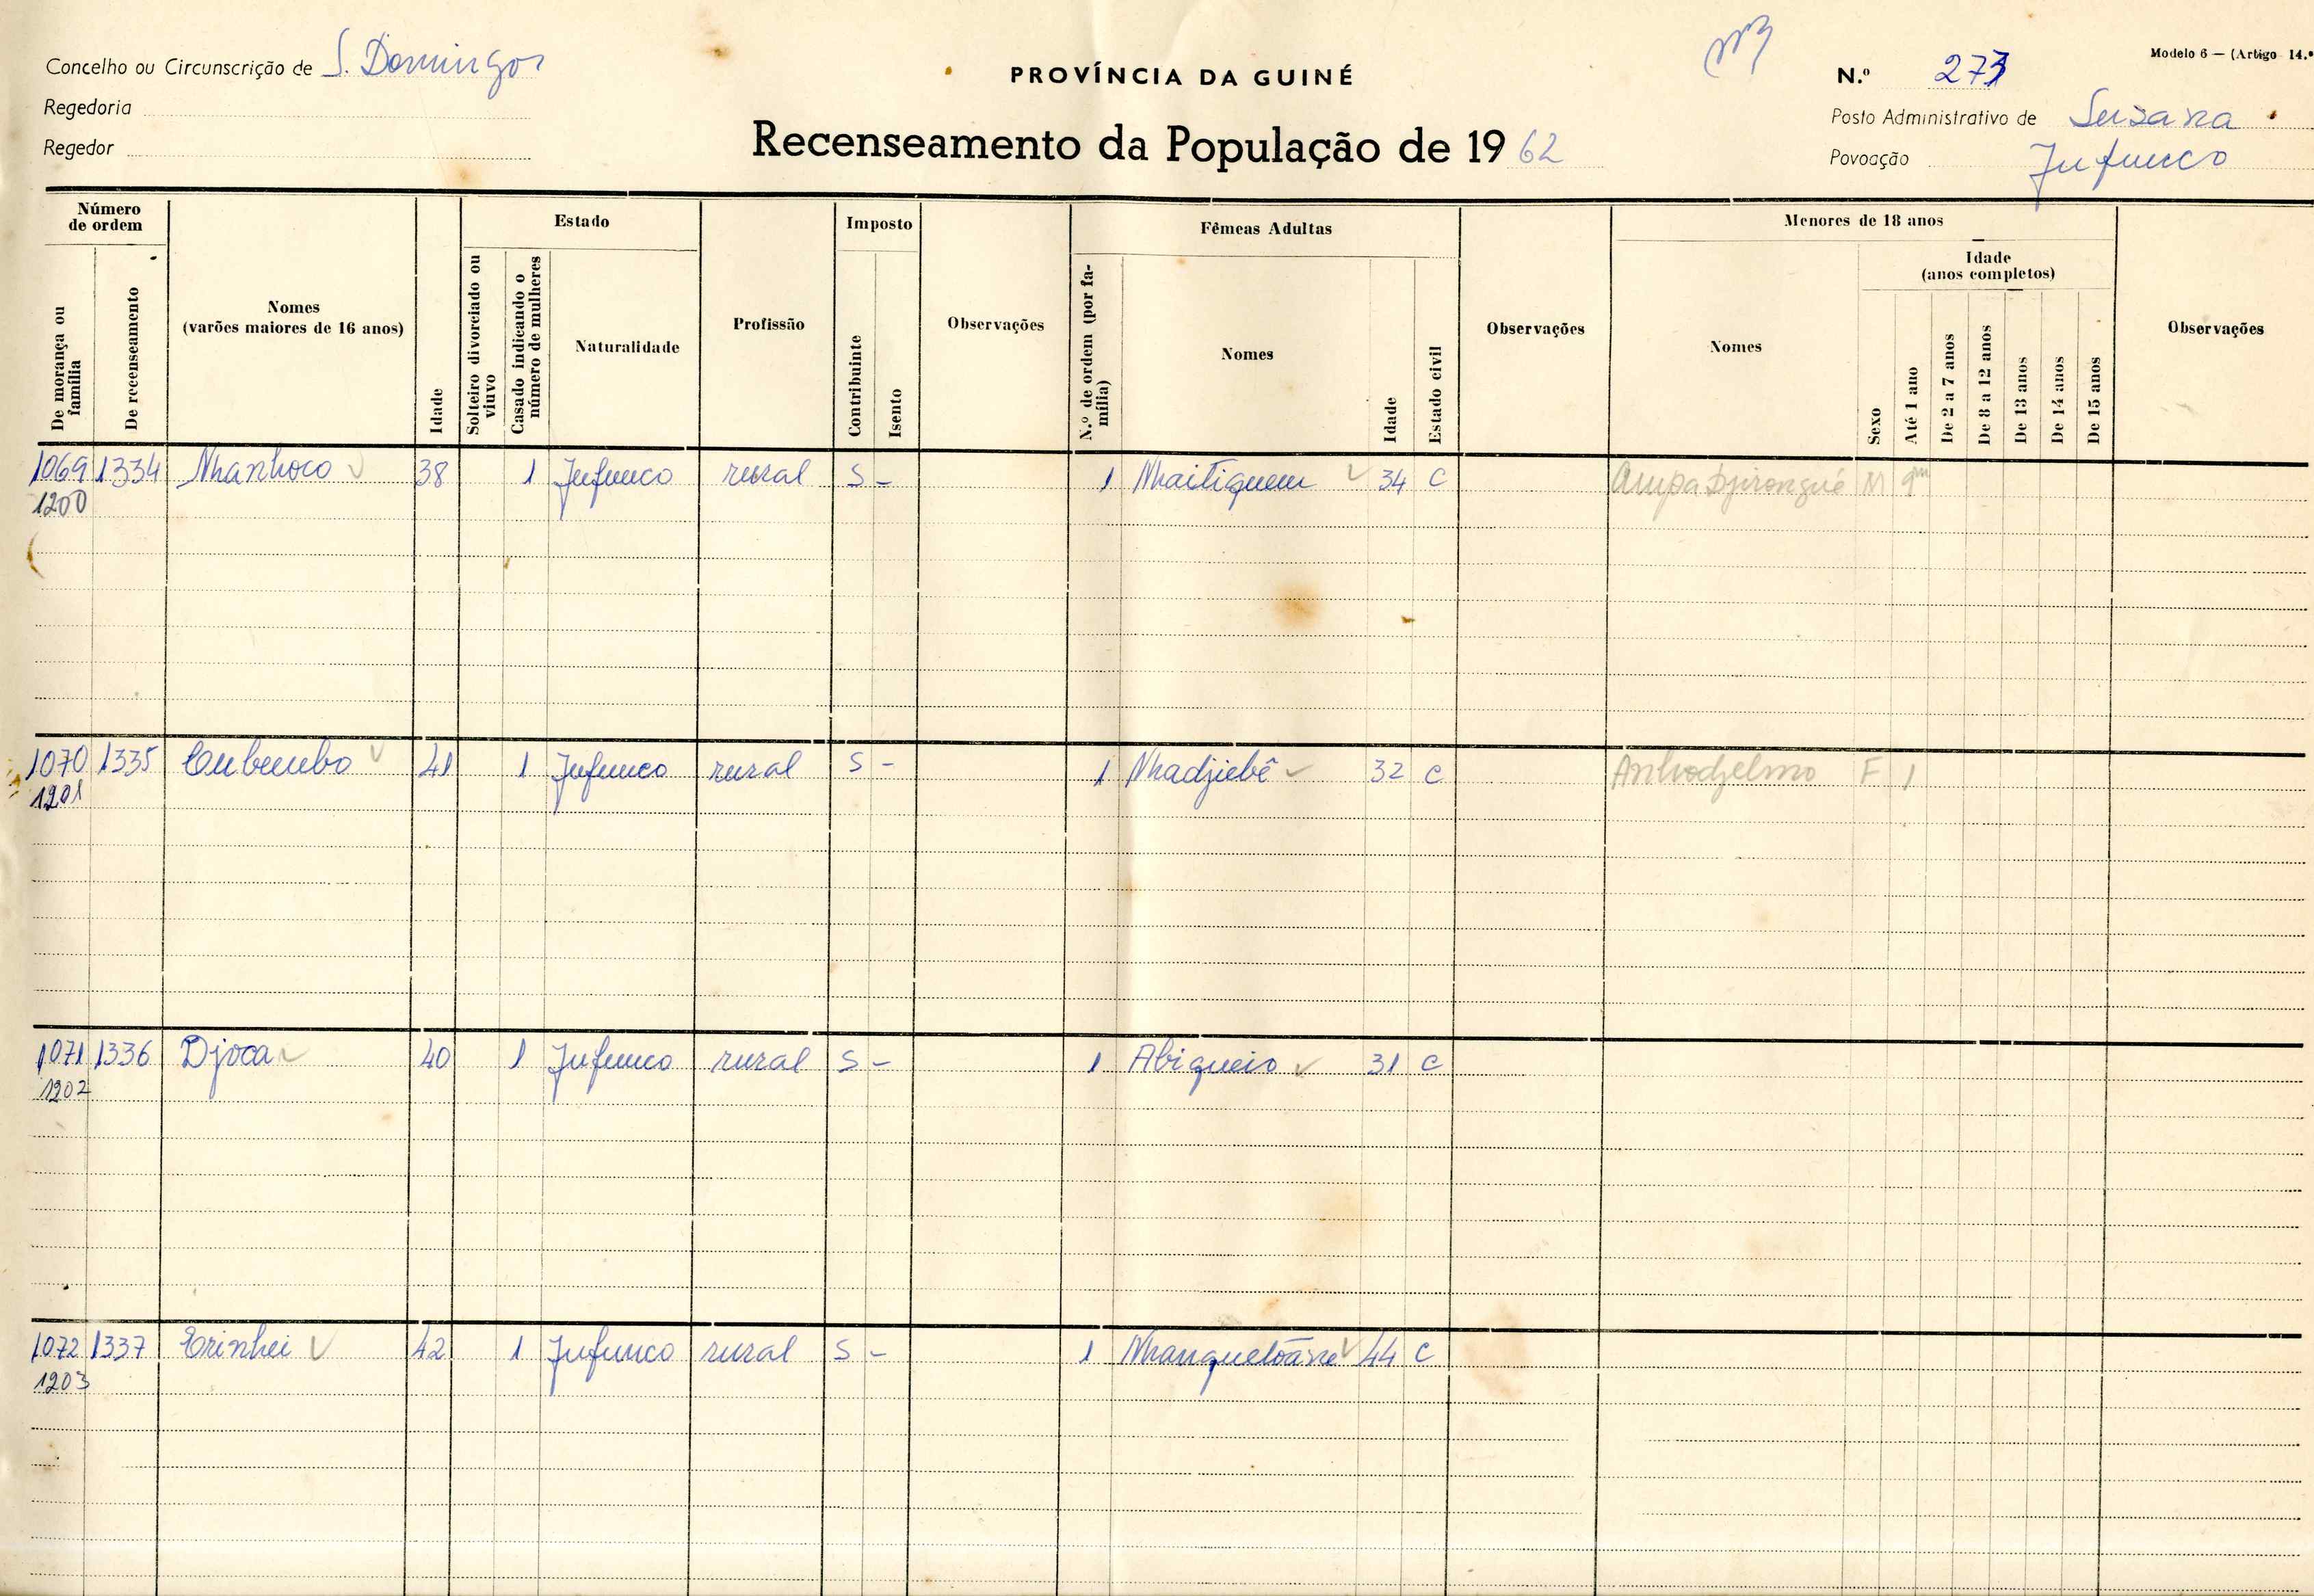 Concelho ou Circunscrição de S. Domingos
Regedoria
Regedor
PROVÍNCIA DA GUINÉ
Recenseamento da População de 19 62
Modelo 6 — (Artigo 14.º
N.º
Posto Administrativo de Susana
Povoação Jufunco
Número de ordem
De morança ou família
De recenseamento
Nomes
(varões maiores de 16 anos)
Idade
Estado
Solteiro divorciado ou viuvo
Casado indicando o número de mulheres
Naturalidade
Profissão
Imposto
Contribuinte
Isento
Observações
Fêmeas Adultas
N.º de ordem (por família)
Nomes
Idade
Estado civil
Observações
Menores de 18 anos
Nomes
Sexo
Idade
(anos completos)
Até 1 ano
De 2 a 7 anos
De 8 a 12 anos
De 13 anos
De 14 anos
De 15 anos
Observações
1069 1334 Nhanhoco 38 1 Jufunco rural S - 1 Nhaitiquem 34 C M 9m
1200
1070 1335 41 1 Jufunco rural S - 1 Nhadjiebê 32 C Anhodjelmo F 1
1201
1071 1336 Djoca 40 1 Jufunco rural S - 1 Abiqueio 31 C
1202
1072 1337 Erinhei 42 1 Jufunco rural S - 1 44 C
1203